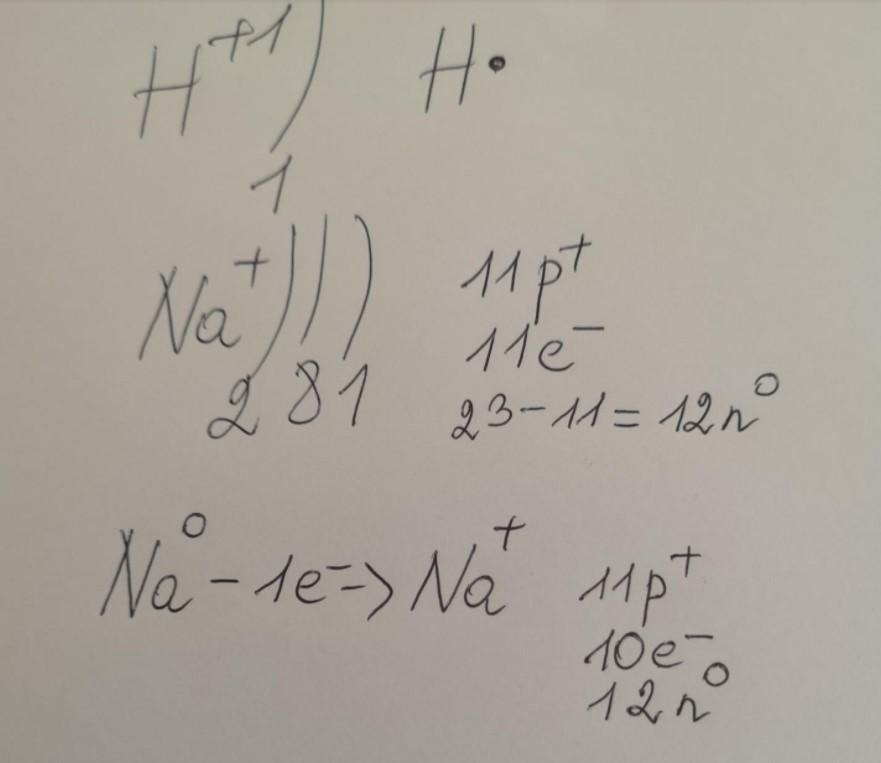 H⁺¹) H•
1
Na⁺))) 11p⁺
11e⁻
2 8 1 23-11=12n⁰
Na⁰-1e⁻=>Na⁺ 11p⁺
10e⁻
12n⁰